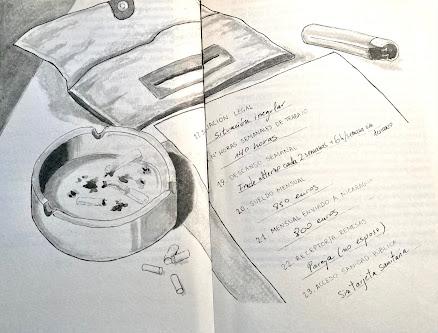 17. SITUACIÓN LEGAL
Situación irregular
Nº HORAS SEMANALES DE TRABAJO
140 horas
19. DESCANSO SEMANAL
Finde alterno cada 2 semanas + 6h/semana
20. SUELDO MENSUAL
850 euros
21. MENSUAL ENVIADO A NICARAGUA
800 euros
22. RECEPTOR/A REMESAS
Pareja (no esposo)
23. ACCESO SANIDAD PÚBLICA
Sí tarjeta sanitaria